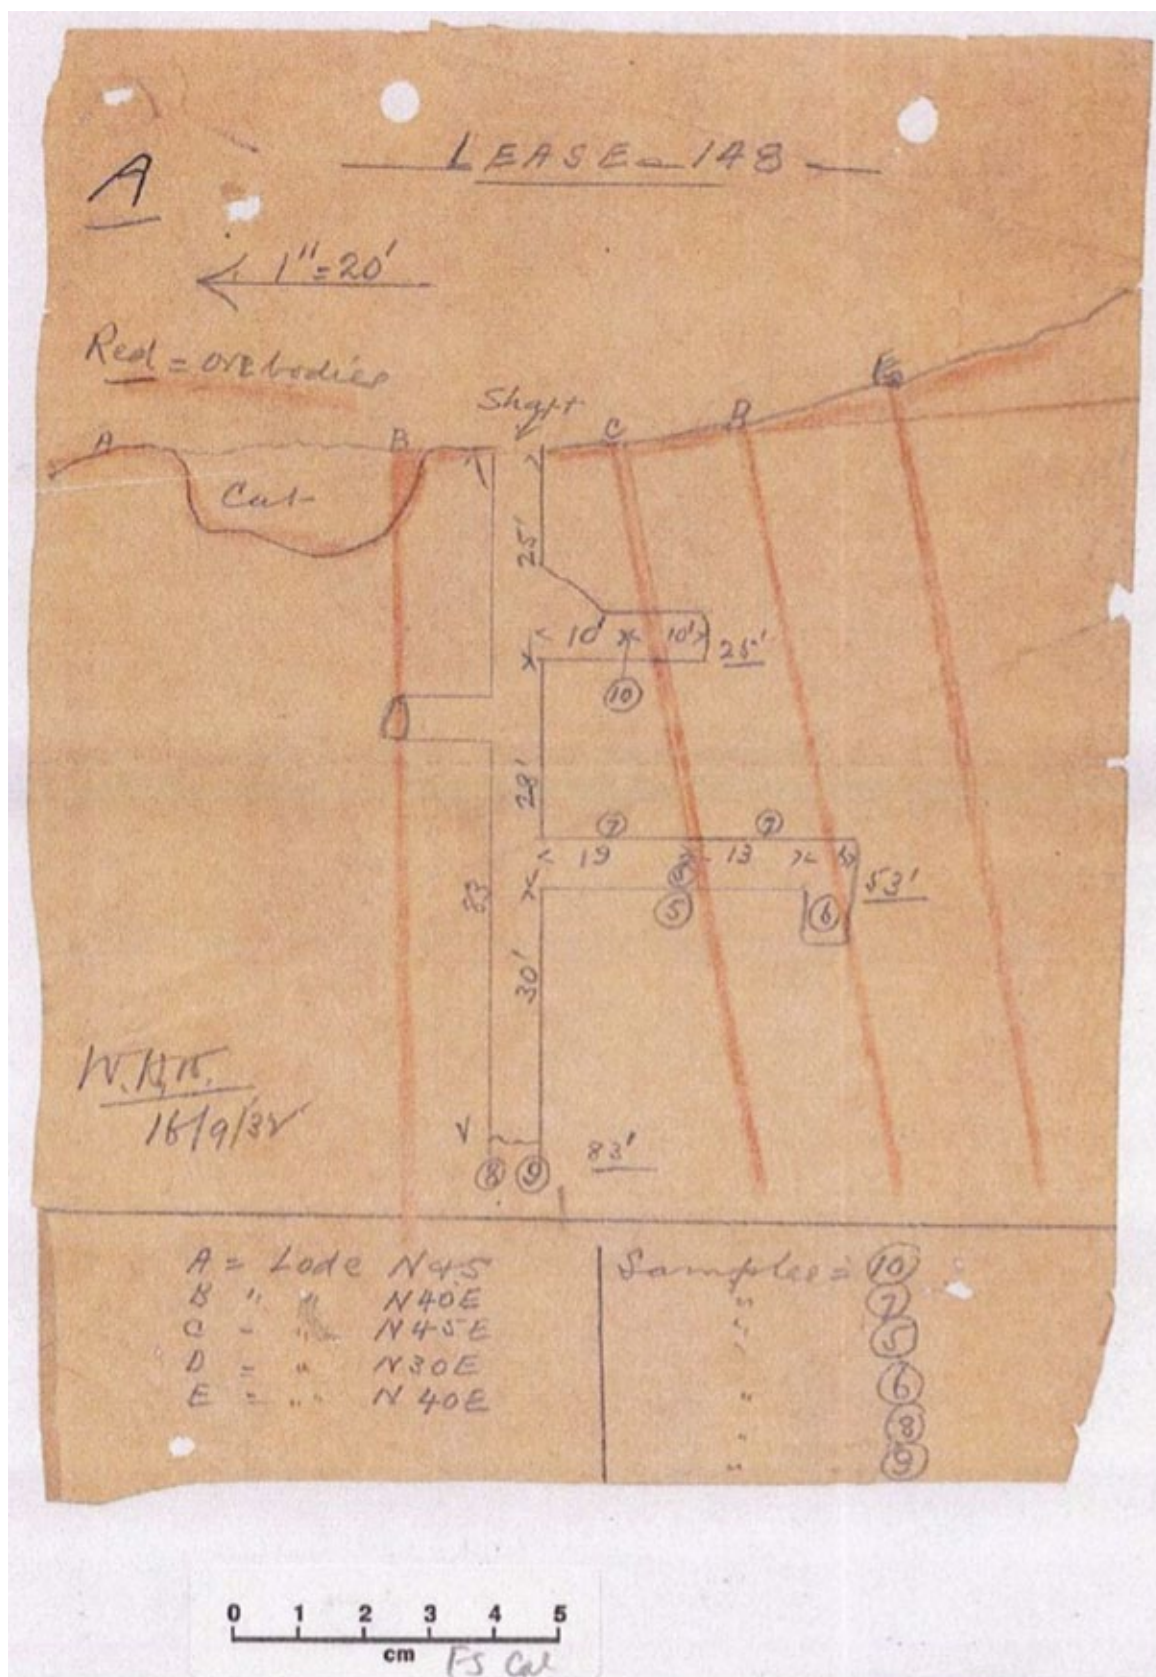 LEASE - 148
A
1" = 20'
Red = orebodies
Shaft
E
A
B
C
D
Cut
25'
10'
10'
25'
10
28'
7
7
19
13
6
53'
5
6
83
30'
16/9/32
83'
8
9
A = Lode N45
B " " N40E
C - " N45E
D = " N30E
E = " N40E
Samples = 10
" 7
" 5
" 6
" 8
" 9
0 1 2 3 4 5
cm
FS Cal